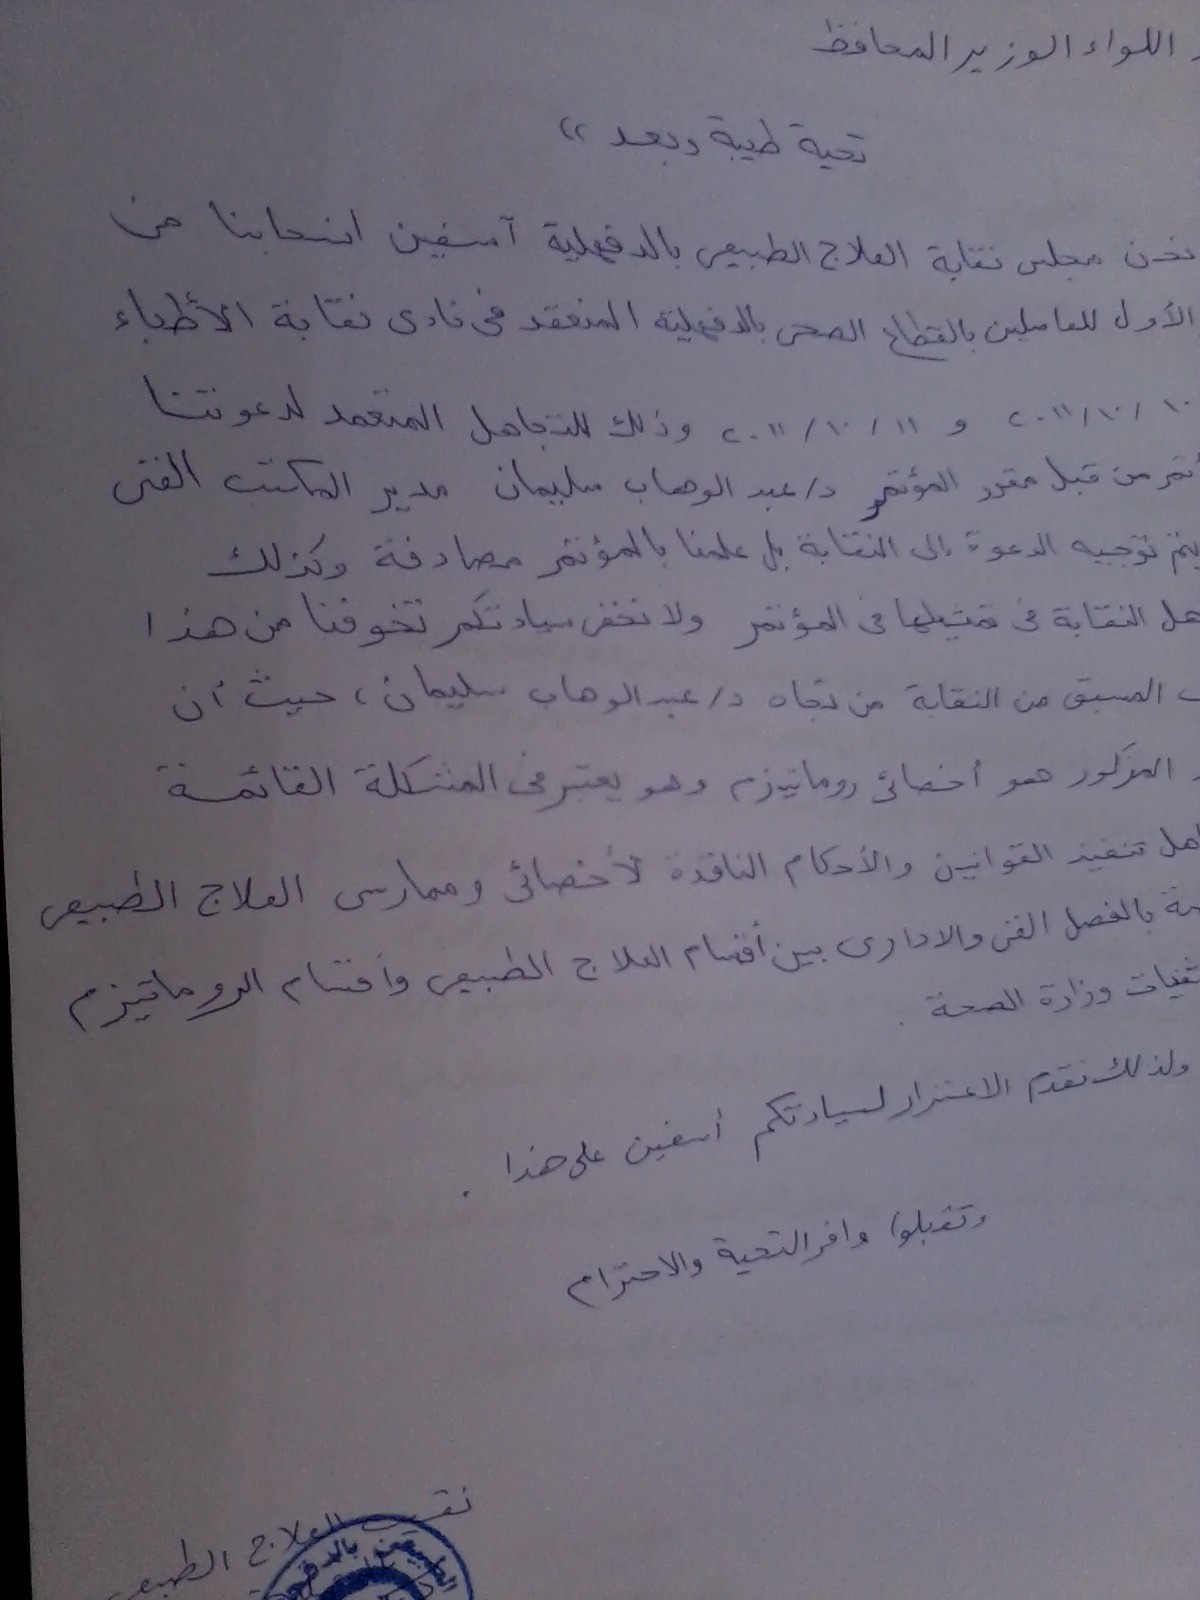 اللواء الوزير المحافظ
تحية طيبة وبعد ,,
نحن مجلس نقابة العلاج الطبيعى بالدقهلية آسفين انسحابنا من
الأول للعاملين بالقطاع الصحى بالدقهلية المنعقد فى نادى نقابة الأطباء
١٠ / ١٠ / ٢٠١١ و ١١ / ١٠ / ٢٠١١ وذلك للتجاهل المتعمد لدعوتنا
من قبل مقرر المؤتمر د/ عبد الوهاب سليمان مدير المكتب الفنى
يتم توجيه الدعوة إلى النقابة بل علمنا بالمؤتمر مصادفة وكذلك
النقابة فى تمثيلها فى المؤتمر ولا نخفى سيادتكم تخوفنا من هذا
المسبق من النقابة من تجاه د/ عبد الوهاب سليمان ، حيث أن
المذكور هو أخصائى روماتيزم وهو يعتبر فى المشكلة القائمة
تنفيذ القوانين والأحكام النافذة لأخصائى وممارسى العلاج الطبيعى
بالفصل الفنى والادارى بين أقسام العلاج الطبيعى وأقسام الروماتيزم
وزارة الصحة .
ولذلك نقدم الاعتذار لسيادتكم أسفين على هذا .
وتقبلوا وافر التحية والاحترام
نقيب العلاج الطبيعى